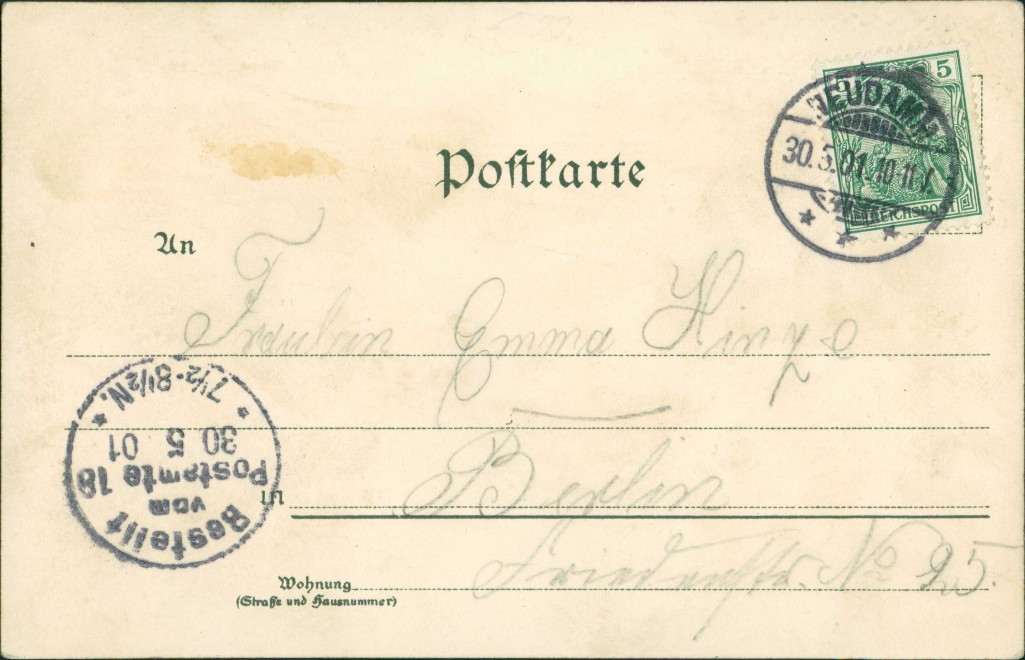 5
REICHSPOST
NEUDAMM
30.5.01.10-11 V.
Postkarte
An
Fräulein Emma Hinze
Bestellt
vom
Postamte 18
30 5 01
7½-8½N.
in
Berlin
Wohnung
(Straße und Hausnummer)
No 95.